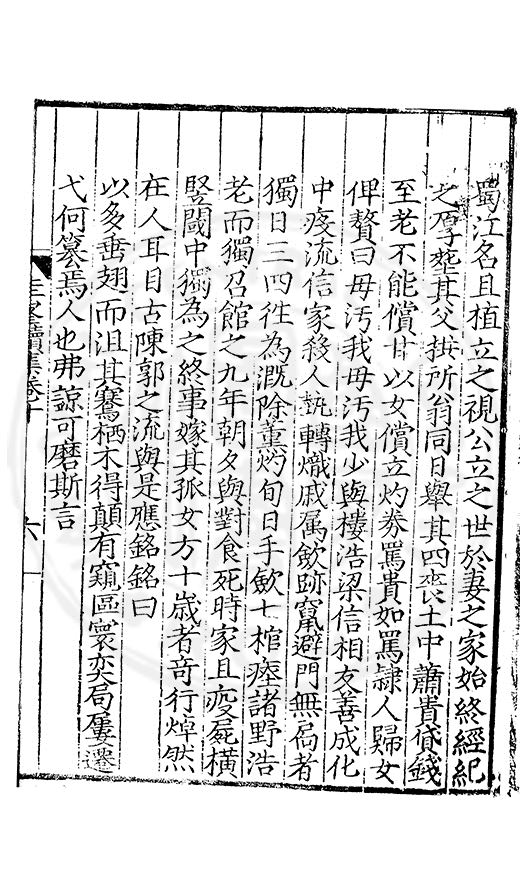 蜀江名且植立之視公立之世於妻之家始終經紀
之厚塟其父拱所翁同日舉其四喪土中蕭貴貸錢
至老不能償甘以女償立灼券罵貴如罵隷人歸女
俾贅曰毋汚我毋汚我少與樓浩梁信相友善成化
中疫流信家殺人埶轉熾戚属歛跡竄避門無局者
獨日三四徃為溉除薰灼旬日手歛七棺瘞諸野浩
老而獨召館之九年朝夕與對食死時家且疫屍橫
堅閾中獨為之終事嫁其孤女方十歲者奇行焯然
在人耳目古陳郭之流與是應銘銘曰
以多啬翅而沮其騫栖木得顛有窺區寰奕局屢遷
弋何篡焉人也弗諒可磨斯言
圭峯續集卷十
六